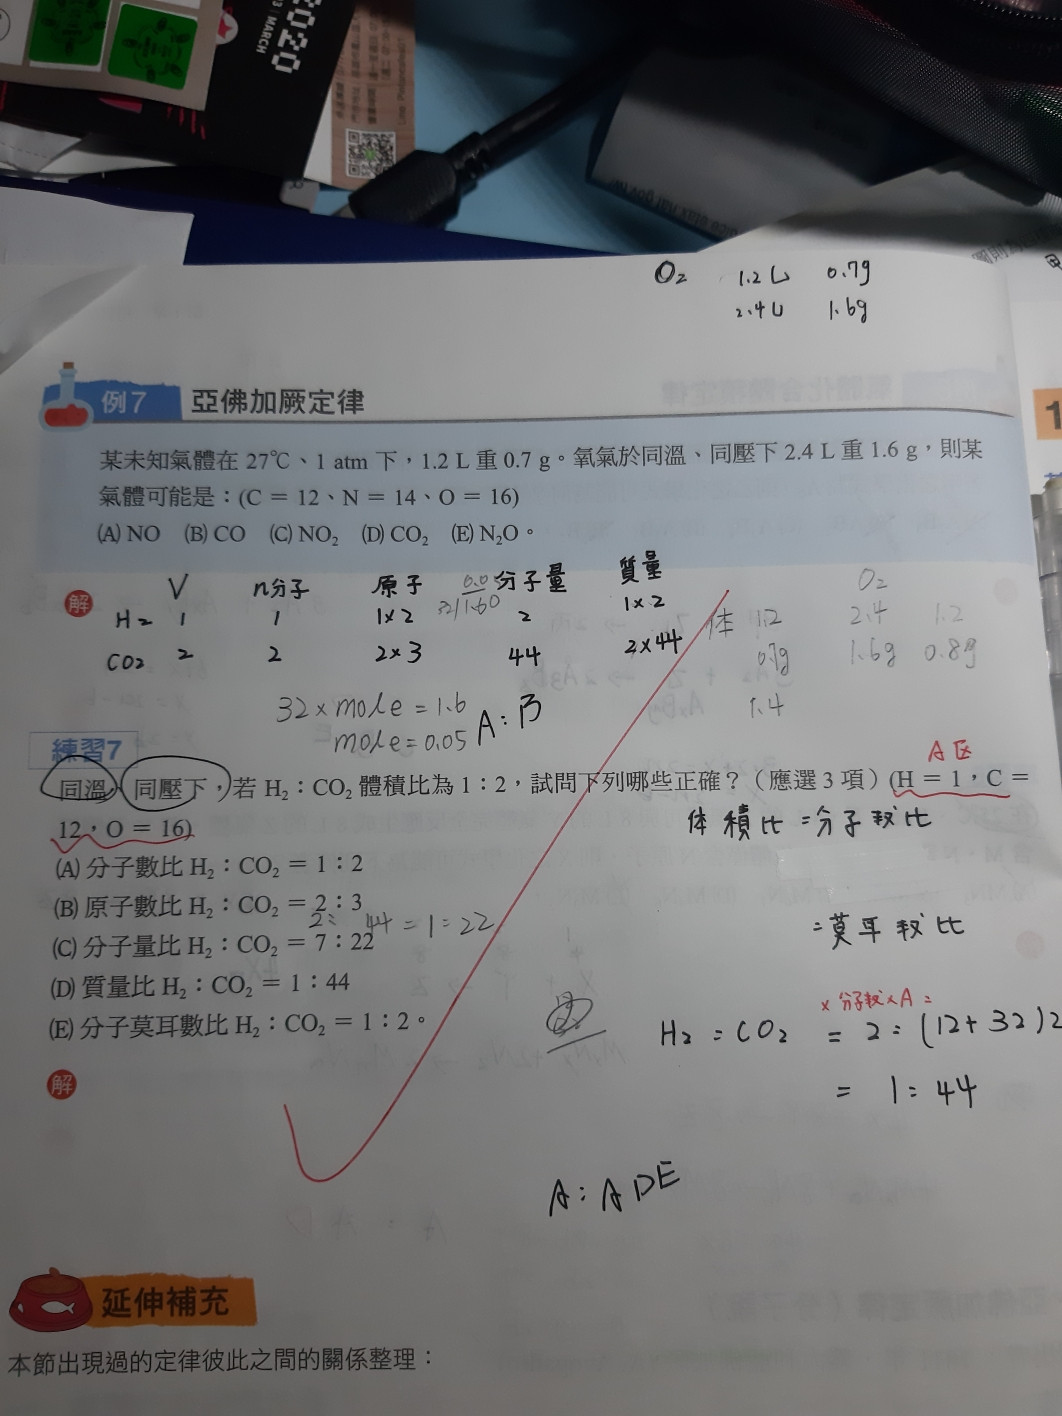 2020
MARCH
O₂ 1.2 L 0.7g
2.4 L 1.6g
例7 亞佛加厥定律
某未知氣體在 27℃、1 atm 下，1.2 L 重 0.7 g。氧氣於同溫、同壓下 2.4 L 重 1.6 g，則某
氣體可能是：(C = 12、N = 14、O = 16)
(A) NO (B) CO (C) NO₂ (D) CO₂ (E) N₂O。
解
V n分子 原子 分子量 質量
H₂ 1 1 1×2 2 1×2
CO₂ 2 2 2×3 44 2×44
O₂
体 1.2 2.4 1.2
0.7g 1.6g 0.8g
1.4
32×mole = 1.6
mole = 0.05
A：B
練習7
A区
同溫、同壓下，若 H₂：CO₂ 體積比為 1：2，試問下列哪些正確？（應選 3 項）(H = 1，C =
12，O = 16)
体積比 = 分子数比
(A) 分子數比 H₂：CO₂ = 1：2
(B) 原子數比 H₂：CO₂ = 2：3
2： 44 = 1：22
= 莫耳数比
(C) 分子量比 H₂：CO₂ = 7：22
(D) 質量比 H₂：CO₂ = 1：44
(E) 分子莫耳數比 H₂：CO₂ = 1：2。
× 分子数×A：
H₂：CO₂ = 2：(12+32)2
= 1：44
解
A：ADE
延伸補充
本節出現過的定律彼此之間的關係整理：
1